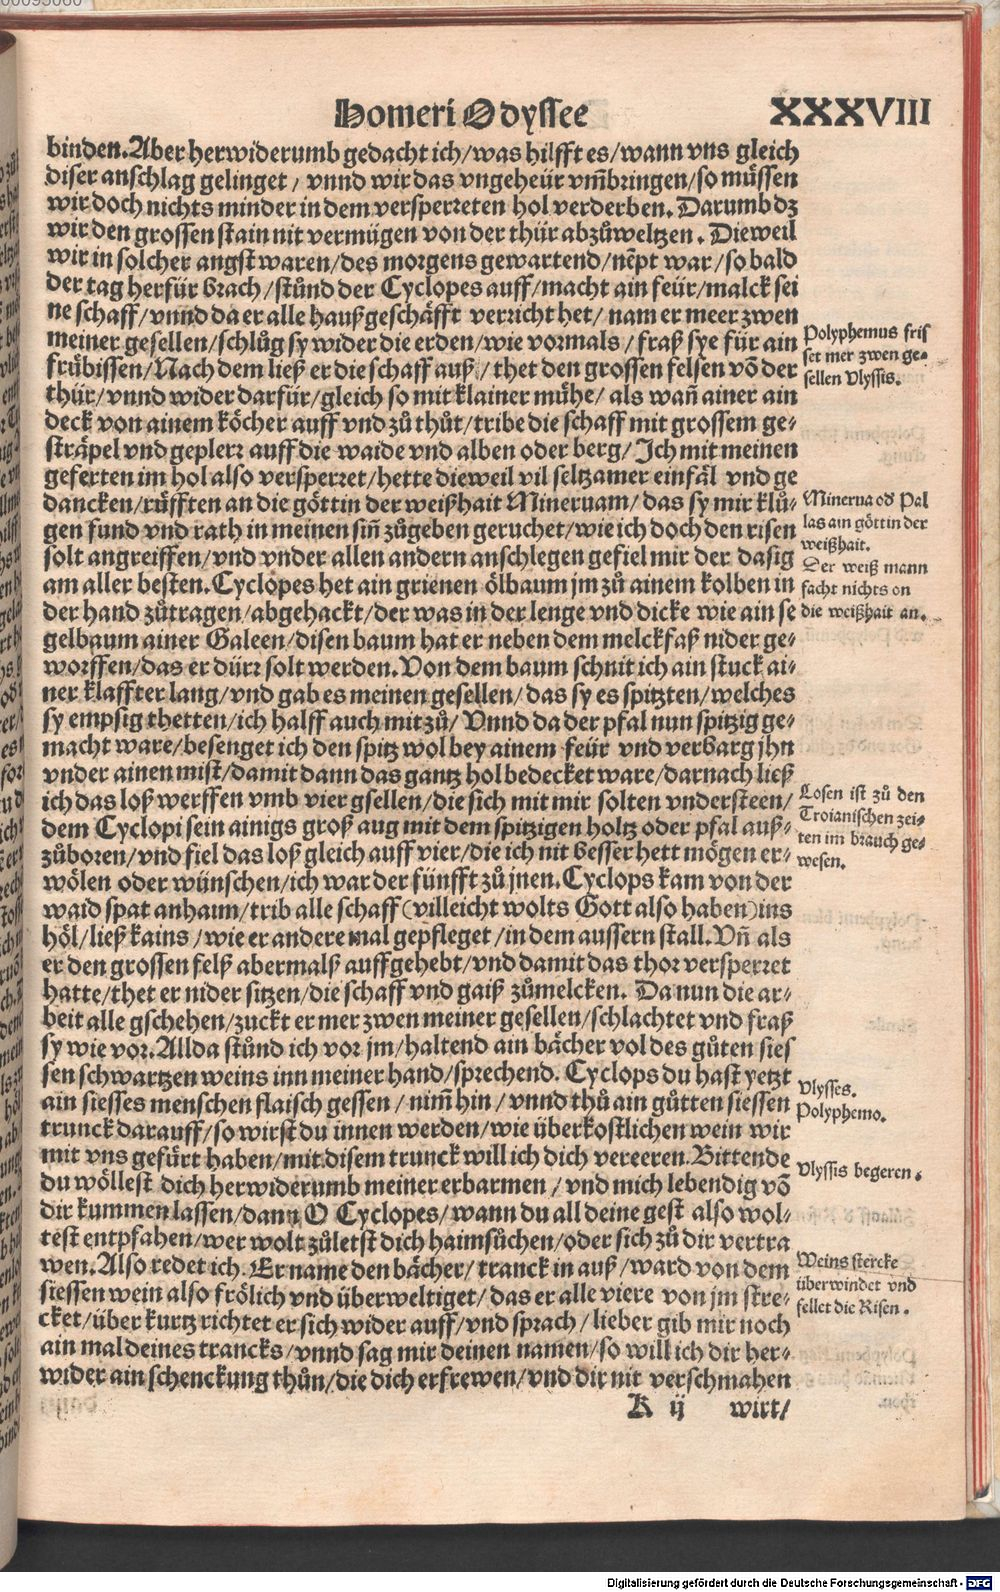 Homeri Odyssee XXXVIII
binden. Aber herwiderumb gedacht ich/was hilfft es/wann vns gleich
diser anschlag gelinget / vnnd wir das vngeheür vm̃bringen/so müssen
wir doch nichts minder in dem versperreten hol verderben. Darumb dz
wir den grossen stain nit vermügen von der thür abzůweltzen. Dieweil
wir in solcher angst waren/des morgens gewartend/nẽpt war/so bald
der tag herfür brach/stůnd der Cyclopes auff/macht ain feür/malck sei
ne schaff/vnnd da er alle haußgeschäfft verricht het/ nam er meer zwen
meiner gesellen/schlůg sy wider die erden/wie vormals / fraß sye für ain
frübissen/Nach dem ließ er die schaff auß/ thet den grossen felsen võ der
thür/vnnd wider darfür/gleich so mit klainer mühe/ als wañ ainer ain
deck von ainem köcher auff vnd zů thůt/tribe die schaff mit grossem ge⸗
sträpel vnd geplerr auff die waide vnd alben oder berg/ Jch mit meinen
geferten im hol also versperret/hette dieweil vil seltzamer einfäl vnd ge
dancken/růfften an die göttin der weißhait Mineruam/ das sy mir klů⸗
gen fund vnd rath in meinen siñ zůgeben geruchet/wie ich doch den risen
solt angreiffen/vnd vnder allen andern anschlegen gefiel mir der dasig
am aller besten. Cyclopes het ain grienen ölbaum jm zů ainem kolben in
der hand zůtragen/abgehackt/der was in der lenge vnd dicke wie ain se
gelbaum ainer Galeen/disen baum hat er neben dem melckfaß nider ge⸗
worffen/das er dürr solt werden. Von dem baum schnit ich ain stuck ai⸗
ner klaffter lang/vnd gab es meinen gesellen/das sy es spitzten/welches
sy empsig thetten/ich halff auch mit zů/ Vnnd da der pfal nun spitzig ge⸗
macht ware/besenget ich den spitz wol bey ainem feür vnd verbarg jhn
vnder ainen mist/damit dann das gantz hol bedecket ware/darnach ließ
ich das loß werffen vmb vier gsellen/die sich mit mir solten vndersteen/
dem Cyclopi sein ainigs groß aug mit dem spitzigen holtz oder pfal auß⸗
zůboren/vnd fiel das loß gleich auff vier/die ich nit besser hett mögen er⸗
wölen oder wünschen/ich war der fünfft zů jnen. Cyclops kam von der
waid spat anhaim/trib alle schaff (villeicht wolts Gott also haben) ins
höl/ließ kains /wie er andere mal gepfleget/in dem aussern stall. Vñ als
er den grossen felß abermalß auffgehebt/vnd damit das thor versperret
hatte/thet er nider sitzen/die schaff vnd gaiß zůmelcken. Da nun die ar⸗
beit alle gschehen/zuckt er mer zwen meiner gesellen/schlachtet vnd fraß
sy wie vor. Allda stůnd ich vor jm/haltend ain bächer vol des gůten sies
sen schwartzen weins inn meiner hand/sprechend. Cyclops du hast yetzt
ain siesses menschen flaisch gessen / nim̃ hin / vnnd thů ain gůtten siessen
trunck darauff/so wirst du innen werden/wie überkostlichen wein wir
mit vns gefürt haben/mit disem trunck will ich dich vereeren. Bittende
du wöllest dich herwiderumb meiner erbarmen / vnd mich lebendig võ
dir kummen lassen/dann O Cyclopes/wann du all deine gest also wol⸗
test entpfahen/wer wolt zůletst dich haimsůchen/oder sich zů dir vertra
wen. Also redet ich. Er name den bächer/ tranck in auß/ward von dem
siessen wein also frölich vnd überweltiget/das er alle viere von jm stre⸗
cket/über kurtz richtet er sich wider auff/vnd sprach/lieber gib mir noch
ain mal deines trancks/vnnd sag mir deinen namen/so will ich dir her⸗
wider ain schenckung thůn/die dich erfrewen/vnd dir nit verschmahen
K ij wirt/
Polyphemus fris
set mer zwen ge⸗
sellen Vlyssis.
Minerua od Pal
las ain göttin der
weißhait.
Der weiß mann
facht nichts on
die weißhait an.
Losen ist zů den
Troianischen zei⸗
ten im brauch ge⸗
wesen.
Vlysses.
Polyphemo.
Vlyssis begeren.
Weins stercke
überwindet vnd
fellet die Risen.
Digitalisierung gefördert durch die Deutsche Forschungsgemeinschaft - DFG